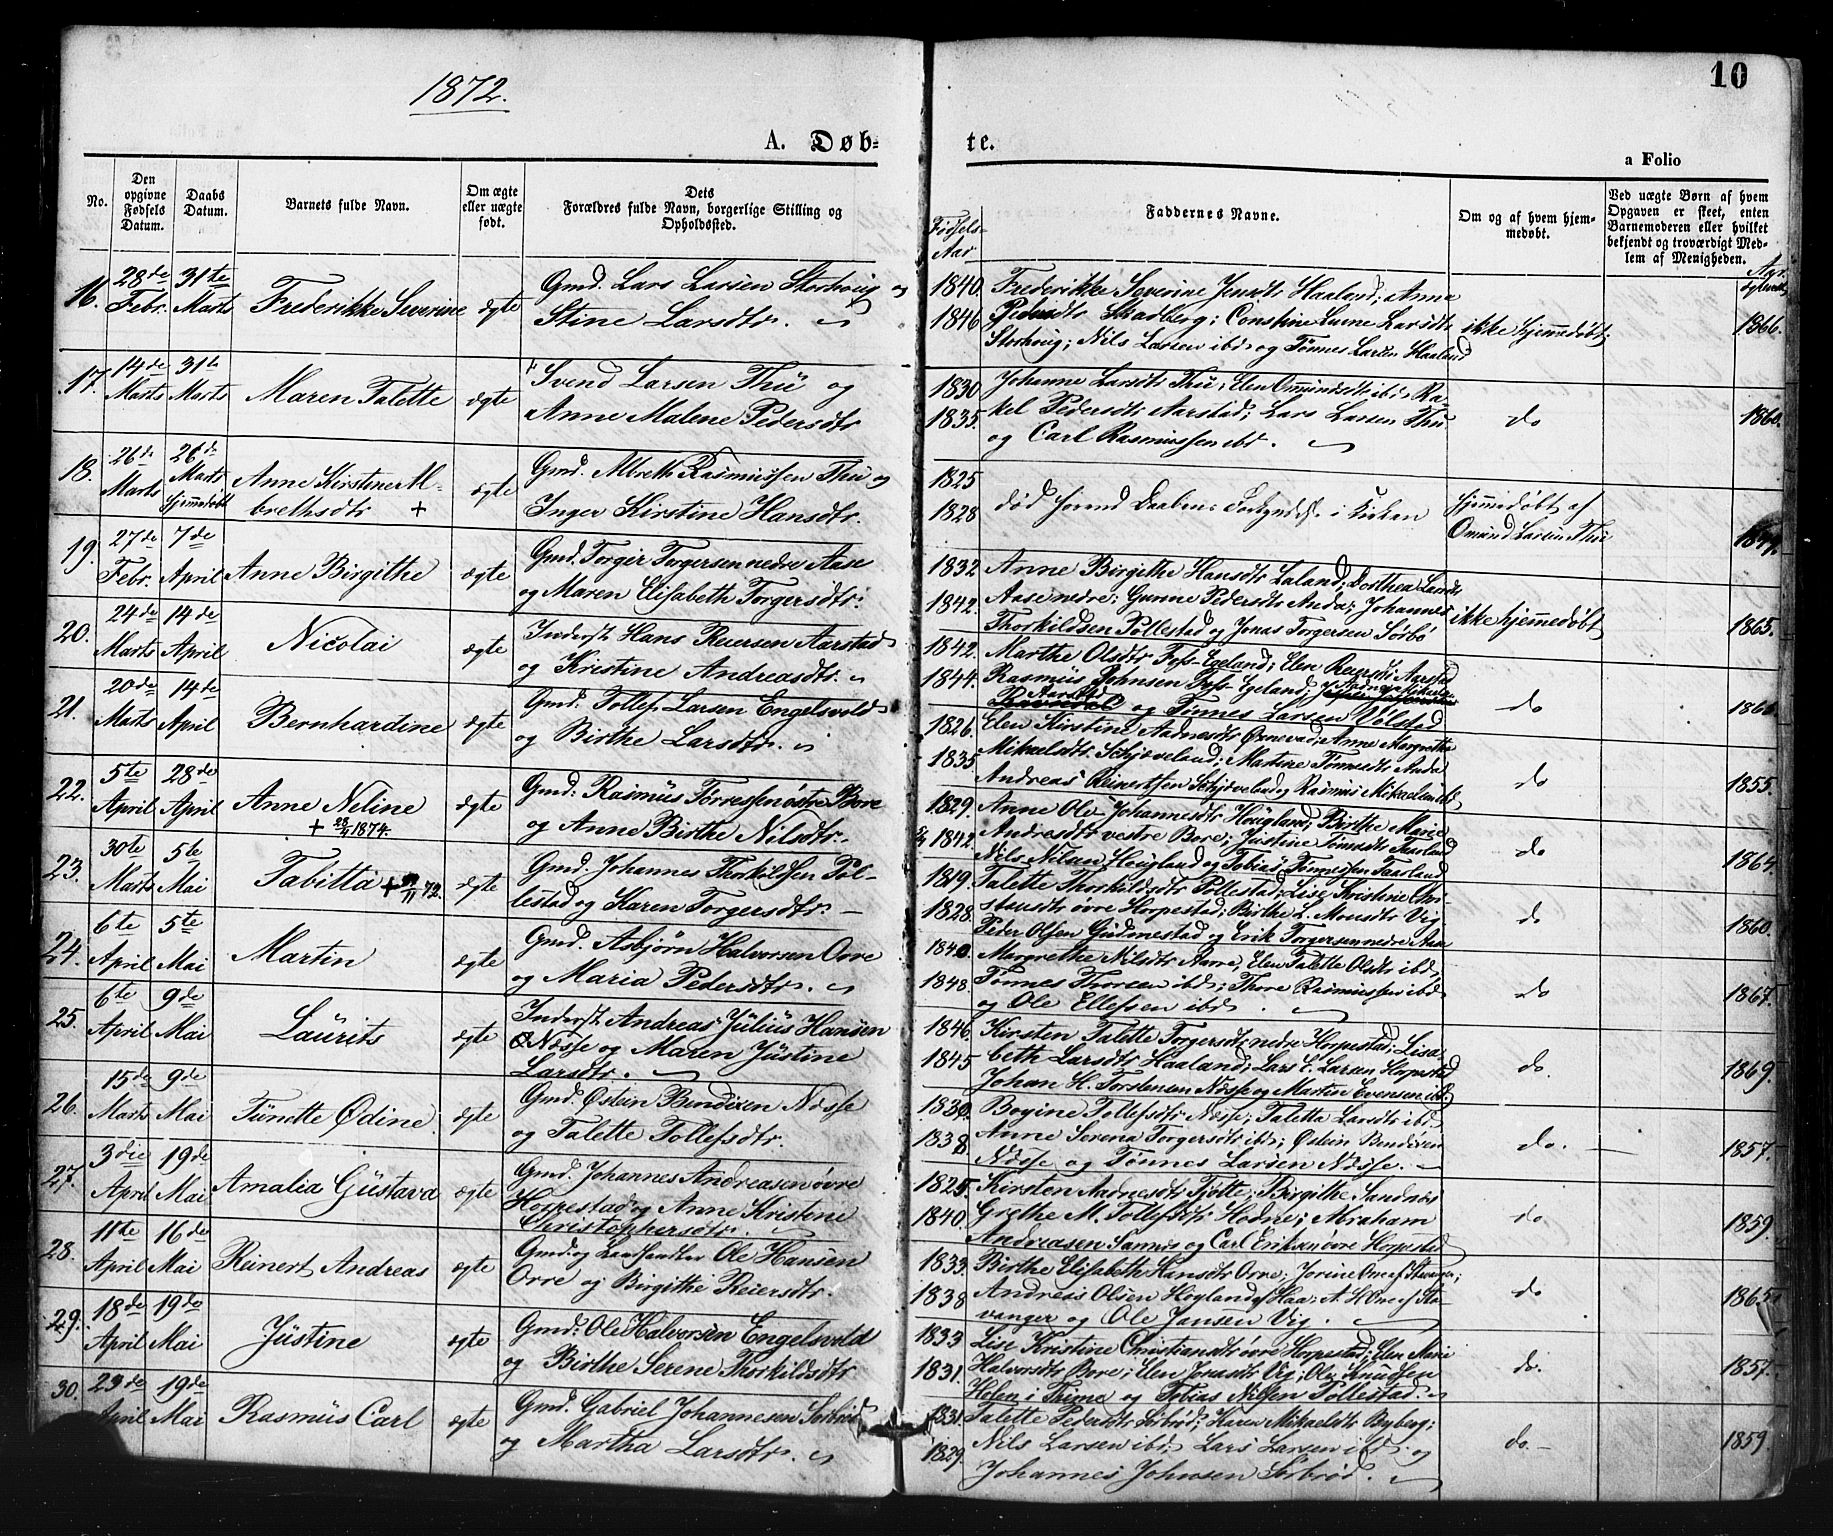 1872.
10
A. Døb-
te.
a Folio
No.
Den opgivne Fødsels Datum.
Daabs Datum.
Barnets fulde Navn.
Om ægte eller uægte født.
Dets Forældres fulde Navn, borgerlige Stilling og Opholdssted.
Fødsels-Aar
Faddernes Navne.
Om og af hvem hjem-medøbt.
Ved uægte Børn af hvem Opgaven er skeet, enten Barnemoderen eller hvilket bekjendt og troværdigt Medlem af Menigheden.
16. 28de Febr. 31te Marts Frederikke Severine ægte Gmd. Lars Larsen Storhoug og
Stine Larsdtr.
1840. Frederikke Severine Jensdtr Haaland; Anna
1846 Pedersdtr Skadberg; Constine Larsdtr
Storhoug; Nils Larsen ibd og Tønnes Larsen Haaland
ikke hjemmedøbt; 1866.
17. 14de Marts 31te Marts Maren Talette ægte Svend Larsen Thu og
Anne Malene Pedersdtr
1830 Johanne Larsdtr Thu; Elen Omundsdtr ibd; Ra-
1835. kel Pedersdtr Aarstad; Lars Larsen Thu
og Carl Rasmussen ibd.
do 1860.
18. 26de Marts 26de Marts Hjemmedøbt Anne Kirstine Al-
brethsdtr + ægte Gmd. Albreth Rasmussen Thu og
Inger Kirstine Hansdtr.
1825
1828 død forend Daabens i Kirken
hjemmedøbt af
Omund Larsen Thu
19. 27de Febr. 7de April Anne Birgithe ægte Gmd. Torger Torgersen nedre Aase
og Maren Elisabeth Torgersdtr.
1832 Anne Birgithe Hansdtr Laland; Dorthea Larsdtr
1842. Aase nedre; Gunne Pedersdtr Anda; Johannes
Thorkildsen Pollestad og Jonas Torgersen Sørbø
ikke hjemmedøbt 1865.
20. 24de Marts 14de April Nicolai ægte Inderst Hans Reiersen Aarstad
og Kristine Andreasdtr.
1842. Marthe Olsdtr Foss-Egeland; Elen Reiersdtr Aarstad
1844. Rasmus Johnsen Foss-Egeland;
Aarstad og Tønnes Larsen Volstad
do
21. 20de Marts 14de April Bernhardine ægte Gmd. Tollef Larsen Engelsvold
og Birthe Larsdtr.
1826. Elen Kirstine Aadnesdtr Ørnevad; Anne Margrethe
1835 Mikaelsdtr Schjæveland; Martine Tønnesdtr Anda
Andreas Reinertsen Schjæveland og Rasmus Mikaelsen ibd
do 1855.
22. 5te April 28de April Anne Neline + 28/4 1874. ægte Gmd. Rasmus Torressen østre Bore
og Anne Birthe Nilsdtr.
1829. Anne Ole Johannesdtr Hougland; Birthe Marie
1842. Andreasdtr vestre Bore; Justine Tønnesdtr Taarland
Nils Nilsen Hougland og Tobias Tønnessen Taarland
do 1864.
23. 30te Marts 5te Mai Tabitta + /11 72. ægte Gmd. Johannes Thorkildsen Pol-
lestad og Karen Torgersdtr.
1819. Talette Thorkildsdtr Pollestad; Lise Kristine Chri-
1828. stiansdtr øvre Horpestad; Birthe L. Monsdtr Vig
Peder Olsen Gudmestad og Erik Torgersen nedre Aase
do 1860.
24. 6te April 5te Mai Martin ægte Gmd. Asbjørn Halvorsen Orre
og Maria Pedersdtr.
1840. Margrethe Nilsdtr Aarre; Elen Talette Olsdtr ibd,
1848. Tønnes Thorsen ibd; Thore Rasmussen ibd
og Ole Ellefsen ibd.
do 1867.
25. 6te April 9de Mai Laurits ægte Inderst Andreas Julius Hansen
Næsse og Maren Justine
Larsdtr.
1846. Kirsten Talette Torgersdtr nedre Horpestad; Lisa-
1845 beth Larsdtr Haaland; Lars E. Larsen Horpestad
Johan H. Torstensen Næsse og Martin Evensen ibd
do. 1869.
26. 15de Marts 9de Mai Tünette Ødine ægte Gmd. Østein Bendixen Næsse
og Talette Tollefsdtr.
1830. Bogine Tollefsdtr Næsse; Taletta Larsdtr ibd.
1838 Anne Serena Torgersdtr ibd; Østein Bendixen
Næsse og Tønnes Larsen Næsse.
do. 1857.
27. 3die April 19de Mai Amalia Gustava ægte Gmd. Johannes Andreasen øvre
Horpestad og Anne Kristine
Christophersdtr
1825. Kirsten Aadnesdtr Tjøtte; Birgithe Sandnæs
1840. Grethe M. Tollefsdtr Hodne; Abraham
Andreasen Sannes og Carl Eriksen øvre Horpestad
do 1859.
28. 11te April 16de Mai Reinert Andreas ægte Gmd. og Landhandler Ole Hansen
Orre og Birgithe Reiersdtr.
1833. Birthe Elisabeth Hansdtr Orre; Jorine Orre af Stavanger;
1838 Andreas Olsen Høyland af Haa; A. H. Orre af Sta-
vanger og Ole Jansen Vig.
do 1865.
29. 18de April 19de Mai Justine ægte Gmd. Ole Halvorsen Engelsvold
og Birthe Serene Thorkildsdtr
1833 Lise Kristine Christiansdtr øvre Horpestad; Elen Marie
1831. Halvorsdtr Bore; Elen Jonasdtr Vig; Ole Knudsen
Holen i Time og Tobias Nilsen Pollestad.
do. 1857.
30. 23de April 19de Mai Rasmus Carl ægte Gmd. Gabriel Johannesen Sørbrød
og Martha Larsdtr.
1831. Talette Pedersdtr Sørbrød; Karen Mikaelsdtr Byberg;
1829. Nils Larsen ibd; Lars Larsen ibd og
Johannes Johnsen Sørbrød.
do. 1859.